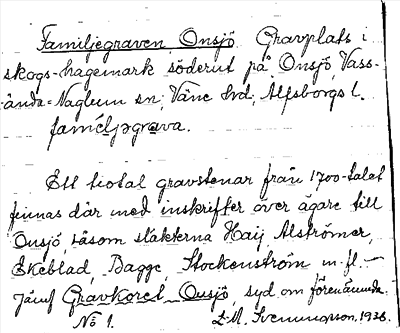 Familjegraven Onsjö Gravplats i
skogs-hagemark söderut på Onsjö, Vass-
ända=Naglum sn, Väne hd, Älfsborgs l.
familjəgrava.
Ett tiotal gravstenar från 1700-talet
finnas där med inskrifter över ägare till
Onsjö, såsom släkterna Haij, Alströmer,
Ekeblad, Bagge, Stockenström m. fl. —
Jämf Gravkoret Onsjö, syd om förenämnda.
No 1. L. M. Svenungsson, 1936.